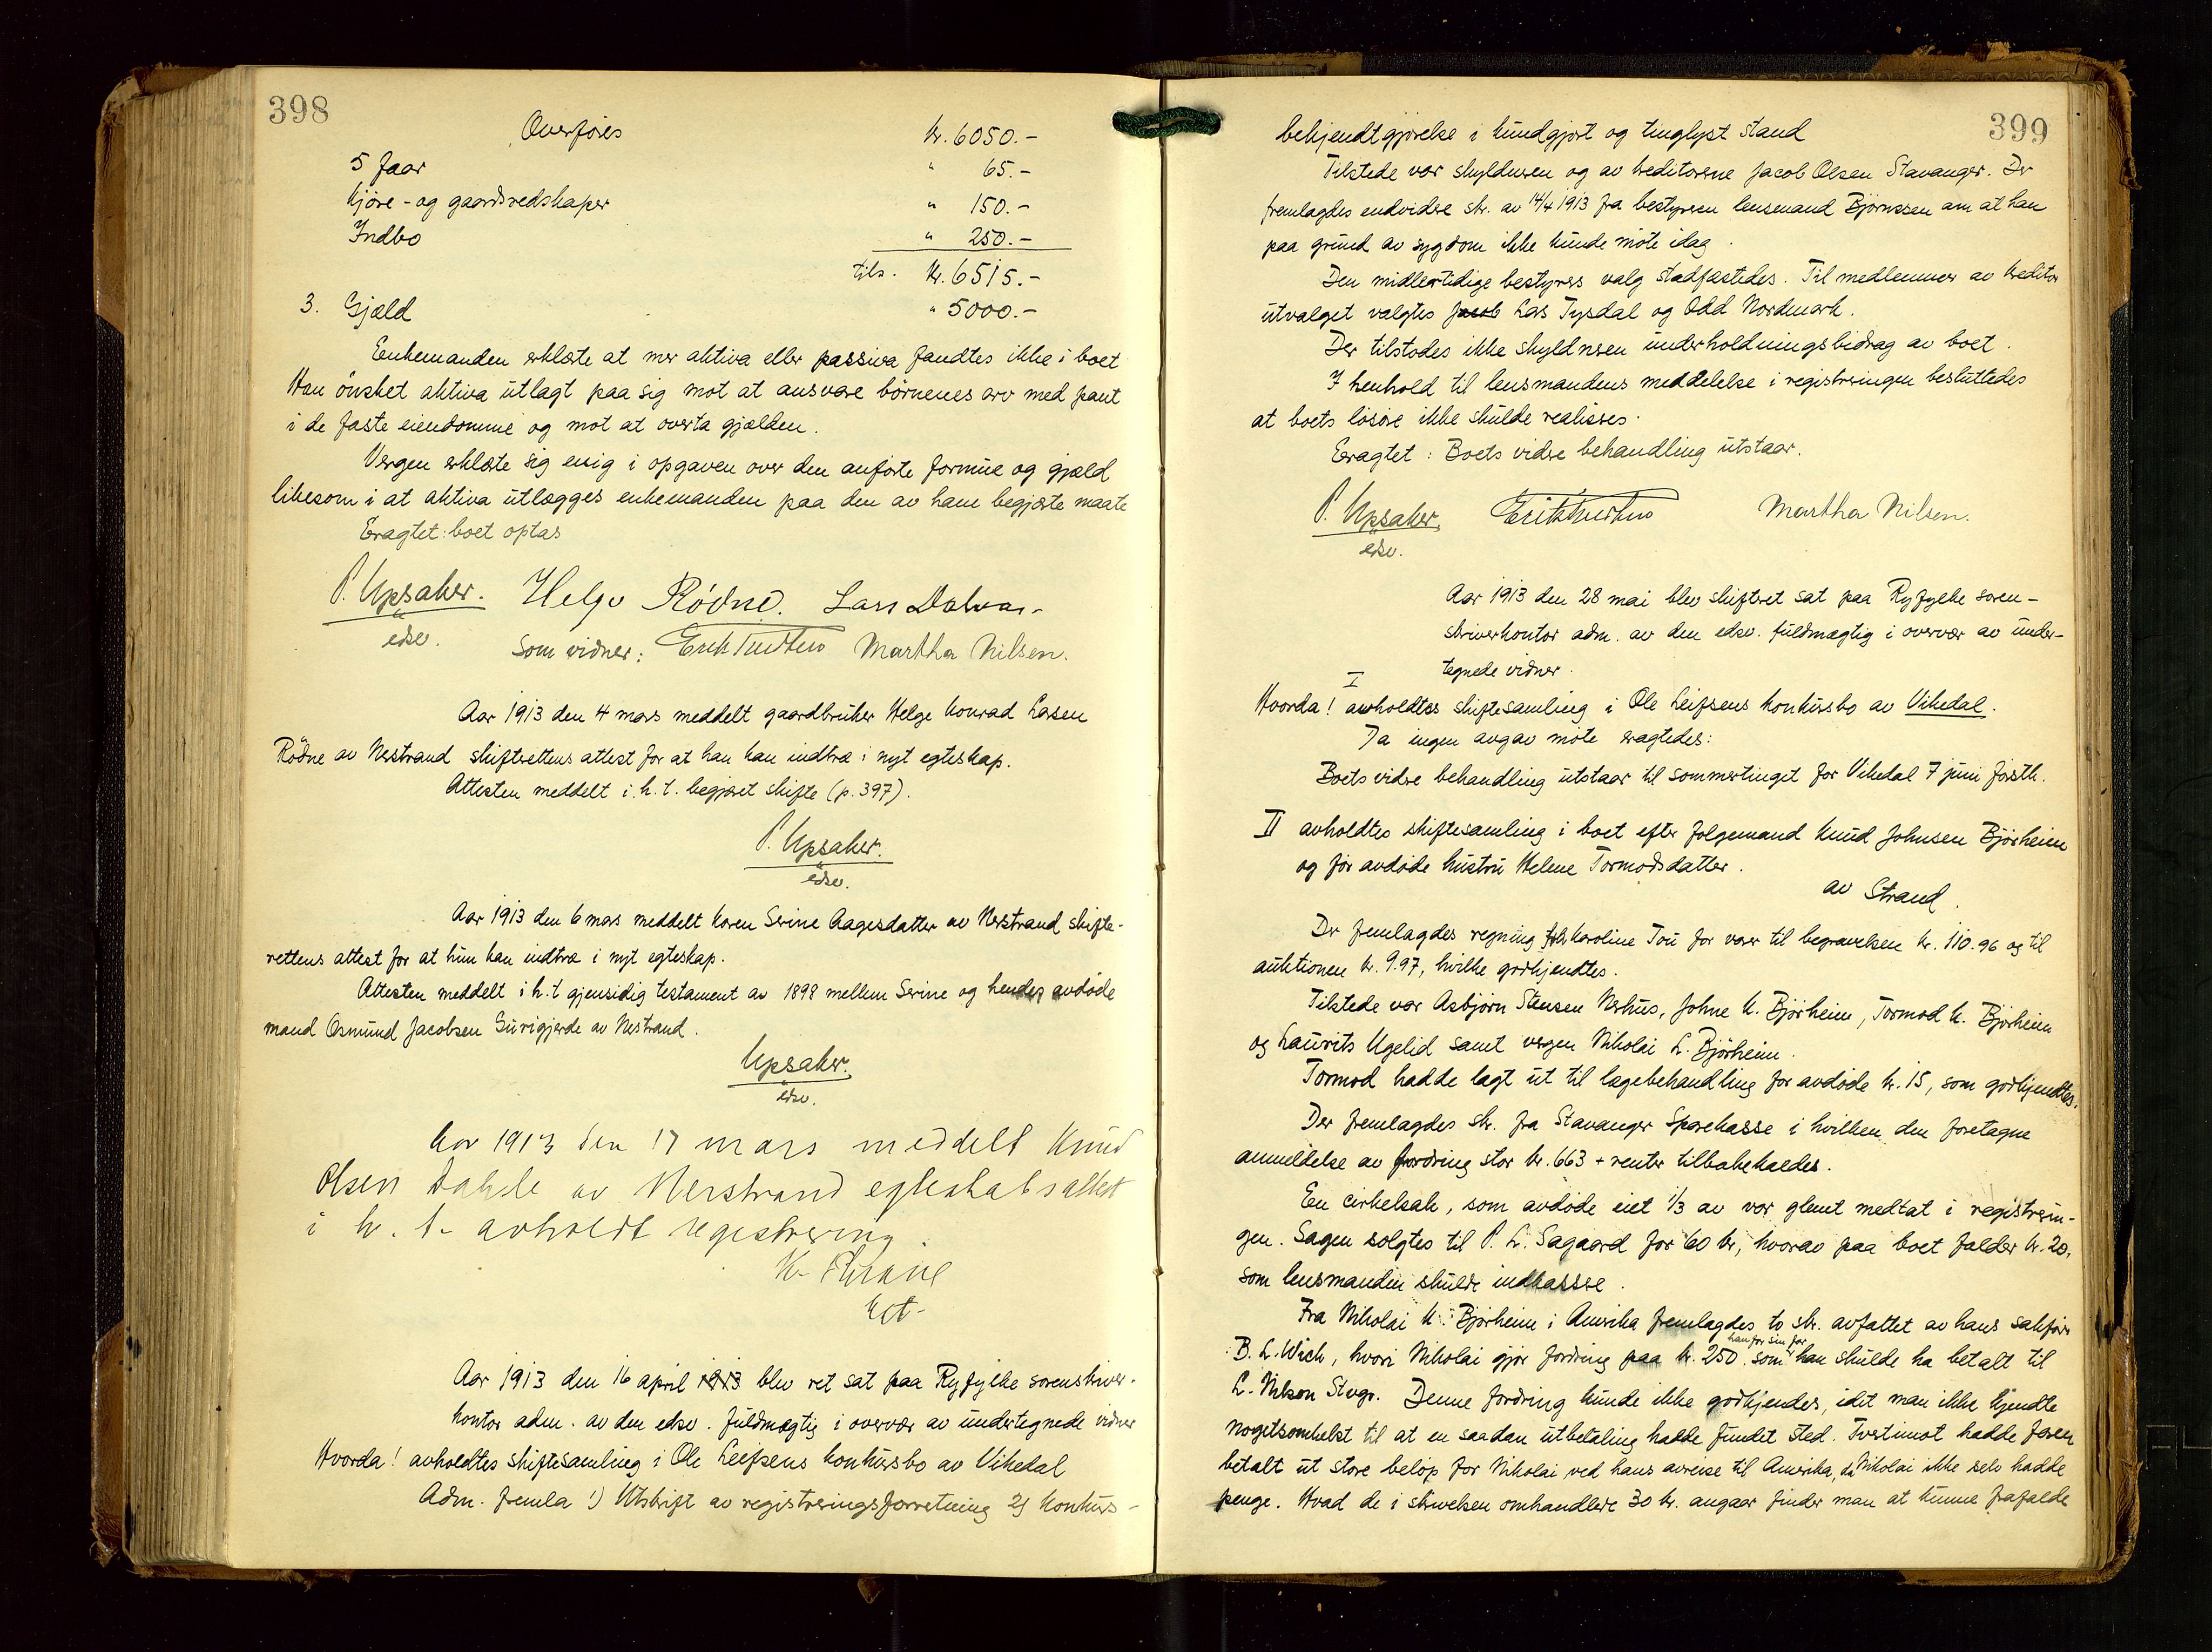 398
Overføres kr. 6050.-
5 faar " 65.-
Kjøre- og gaardsredskaper " 150.-
Indbo " 250.-
tils. kr. 6515.-
3. Gjæld " 5000.-
Enkemanden erklærte at mer aktiva eller passiva fandtes ikke i boet
Han ønsket aktiva utlagt paa sig mot at ansvare børnenes arv med pant
i de faste eiendomme og mot at overta gjælden.
Vergen erklærte sig enig i opgaven over den anførte formue og gjæld
likesom i at aktiva utlægges enkemanden paa den av ham begjærte maate
Eragtet: boet optas
P. Upsaker. Helge Rødne. Lars Dalvar
edsv. Som vidner: Martha Nilsen.
Aar 1913 den 4 mars meddelt gaardbruker Helge Konrad Larsen
Rødne av Nerstrand skifterettens attest for at han kan indtræ i nyt egteskap.
Attesten meddelt i h. t. begjæret skifte (p. 397).
P. Upsaker.
edsv.
Aar 1913 den 6 mars meddelt Karen Serine Aagesdatter av Nerstrand skifte-
rettens attest for at hun kan indtræ i nyt egteskap.
Attesten meddelt i h. t gjensidig testament av 1898 mellem Serine og hendes avdøde
mand Osmund Jacobsen Gurigjerde av Nerstrand.
Upsaker.
edsv.
Aar 1913 den 17 mars meddelt Knud
Olsen Dahle av Nerstrand egteskabsattest
i h. t. avholdt registrering.
K.
kst.
Aar 1913 den 16 april 1913 blev ret sat paa Ryfylke sorenskriver-
kontor adm. av den edsv. fuldmægtig i overvær av undertegnede vidner
Hvorda! avholdtes skiftesamling i Ole Leifsens konkursbo av Vikedal
Adm. fremla 1) Utskrift av registreringsforretning 2) konkurs-
399
bekjendtgjørelse i kundgjort og tinglyst stand
Tilstede var skyldneren og av kreditorene Jacob Olsen Stavanger. Der
fremlagdes endvidere skr. av 14/4 1913 fra bestyreren lensmand Bjørnssen om at han
paa grund av sygdom ikke kunde møte idag.
Den midlertidige bestyrers valg stadfæstedes. Til medlemmer av kreditor
utvalget valgtes Jacob Lars Tysdal og Odd Nordmark.
Der tilstodes ikke skyldneren underholdningsbidrag av boet.
I henhold til lensmandens meddelelse i registreringen besluttedes
at boets løsøre ikke skulde realiseres.
Eragtet: Boets videre behandling utstaar.
P. Upsaker. Martha Nilsen.
edsv.
Aar 1913 den 28 mai blev skifteret sat paa Ryfylke soren-
skriverkontor adm. av den edsv. fuldmægtig i overvær av under-
tegnede vidner.
I
Hvorda! avholdtes skiftesamling i Ole Leifsens konkursbo av Vikedal.
Da ingen avgav møte eragtedes:
Boets videre behandling utstaar til sommertinget for Vikedal 7 juni førsth.
II avholdtes skiftesamling i boet efter følgemand Knud Johnsen Bjørheim
og før avdøde hustru Helene Tormodsdatter.
av Strand.
Der fremlagdes regning fra Karoline Tou for varer til begravelsen kr. 110.96 og til
auktionen kr. 9.97, hvilke godkjendtes.
Tilstede var Asbjørn Stensen Nerhus, Johne K. Bjørheim, Tormod K. Bjørheim
og Laurits Ugelid samt vergen Nikolai L. Bjørheim.
Tormod hadde lagt ut til lægebehandling for avdøde kr. 15, som godkjendtes.
Der fremlagdes skr. fra Stavanger Sparekasse i hvilken den foretagne
anmeldelse av fordring stor kr. 663 + renter tilbakekaldes.
En cirkelsak, som avdøde eiet 1/3 av var glemt medtat i registrerin-
gen. Sagen solgtes til P. L. Sagaard for 60 kr, hvorav paa boet falder kr. 20,
som lensmanden skulde indkassere.
Fra Nikolai K. Bjørheim i Amerika fremlagdes to skr. avfattet av hans sakfører
B. L. Wick, hvori Nikolai gjør fordring paa kr. 250. som han for sin far han skulde ha betalt til
L. Nilson Stvgr. Denne fordring kunde ikke godkjendes, idet man ikke kjendte
nogetsomhelst til at en saadan utbetaling hadde fundet sted. Tvertimot hadde faren
betalt ut store beløp for Nikolai ved hans avreise til Amerika, da Nikolai ikke selv hadde
penge. Hvad de i skrivelsen omhandlede 30 kr. angaar finder man at kunne frafalde